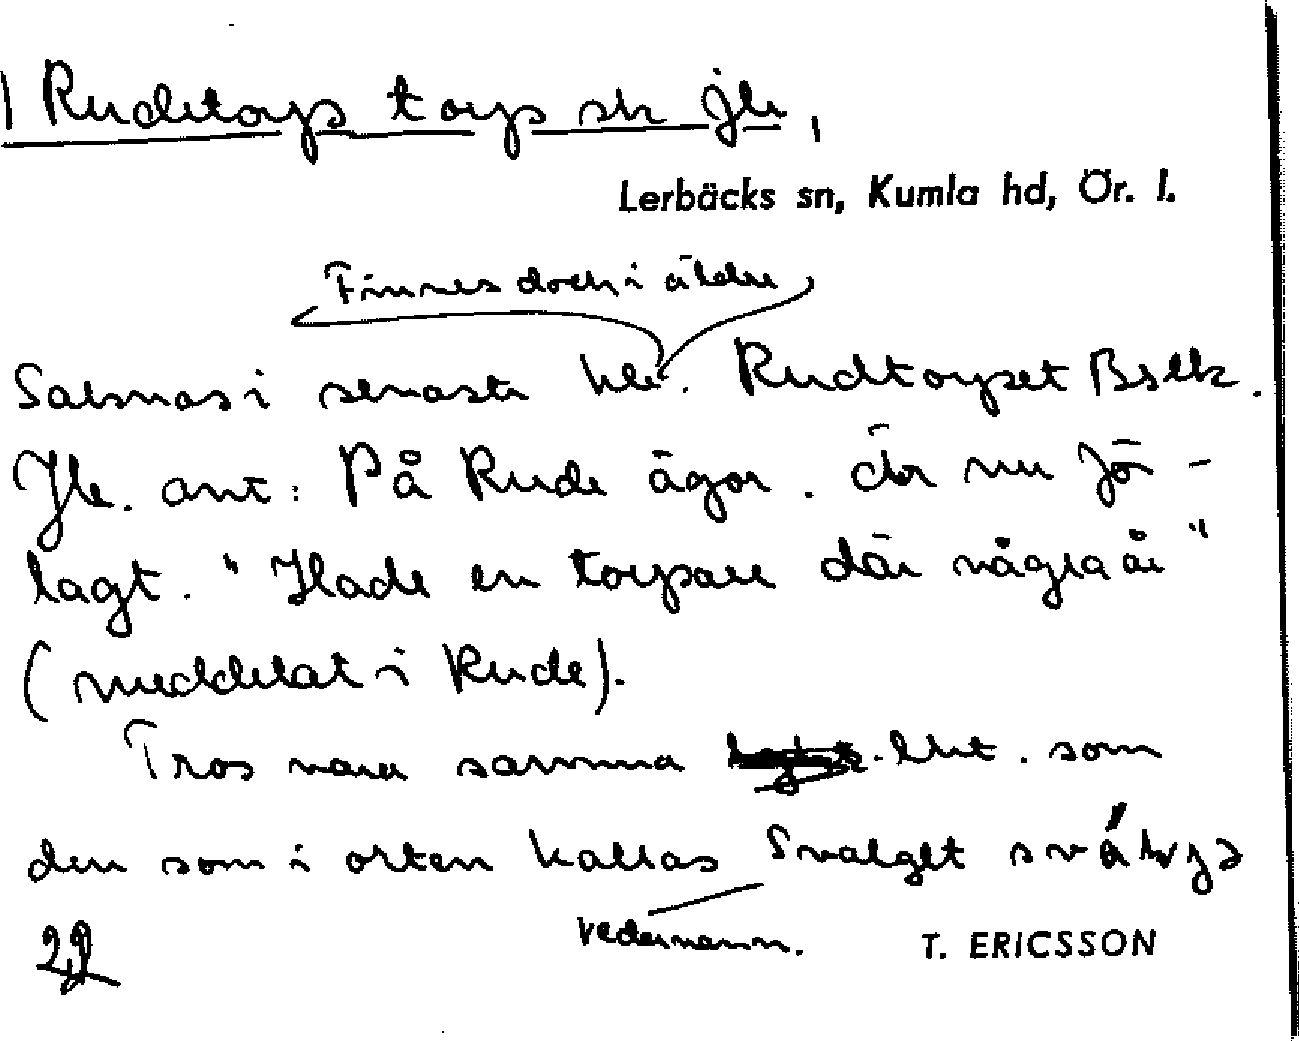 Rudetorps torp sk Jle,
Lerbäcks sn, Kumla hd, Ör. l.
Finnes dock i äldre
Saknas i senaste hfl. Rudtorpet Bslk.
Jle. ant: På Rude ägor. där nu för-
lagt. "Hade en torpare där några år"
(meddelat i Rude).
Tros vara samma lht. som
den som i orten kallas Svalget
Vedernamn.
T. ERICSSON